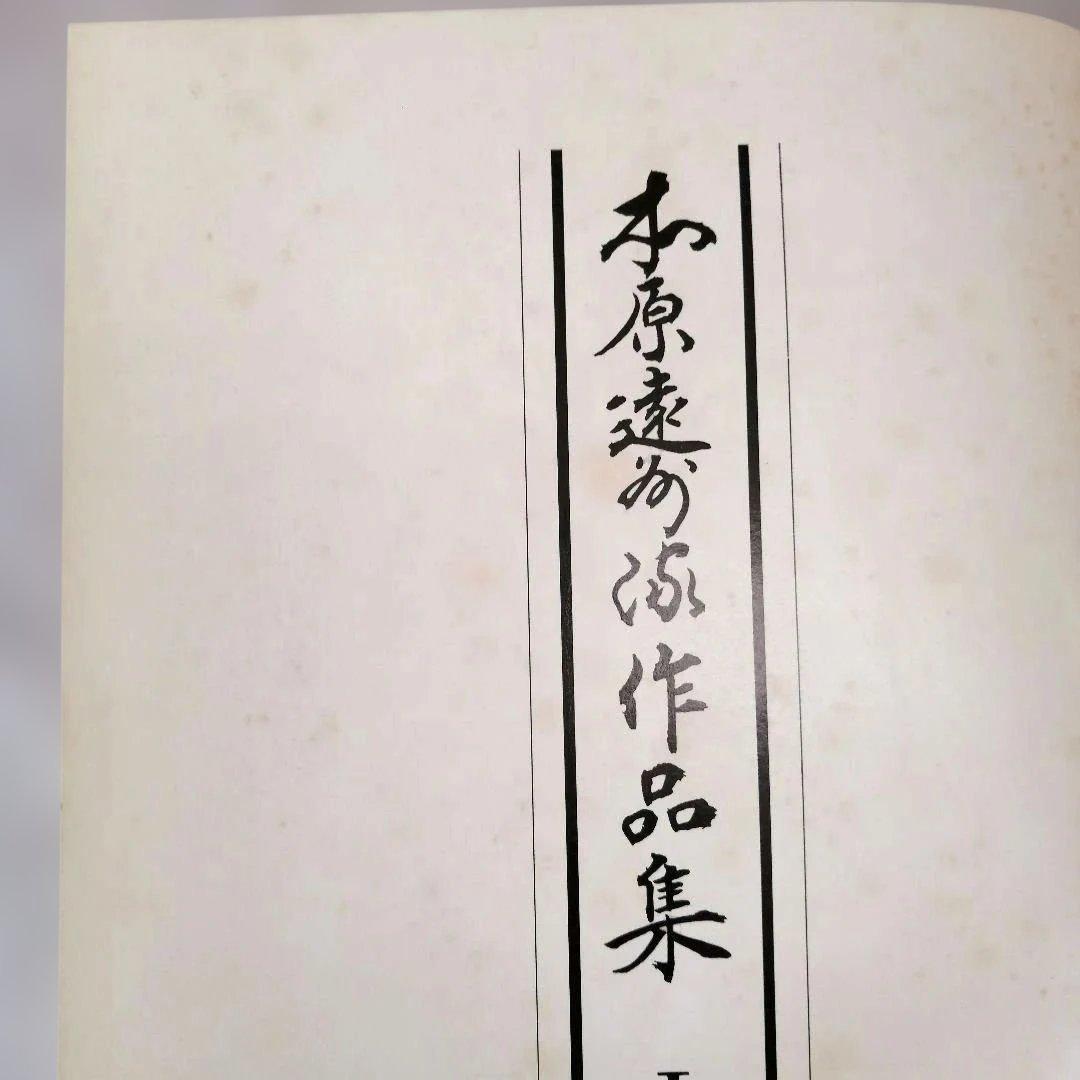 本原遠州流作品集